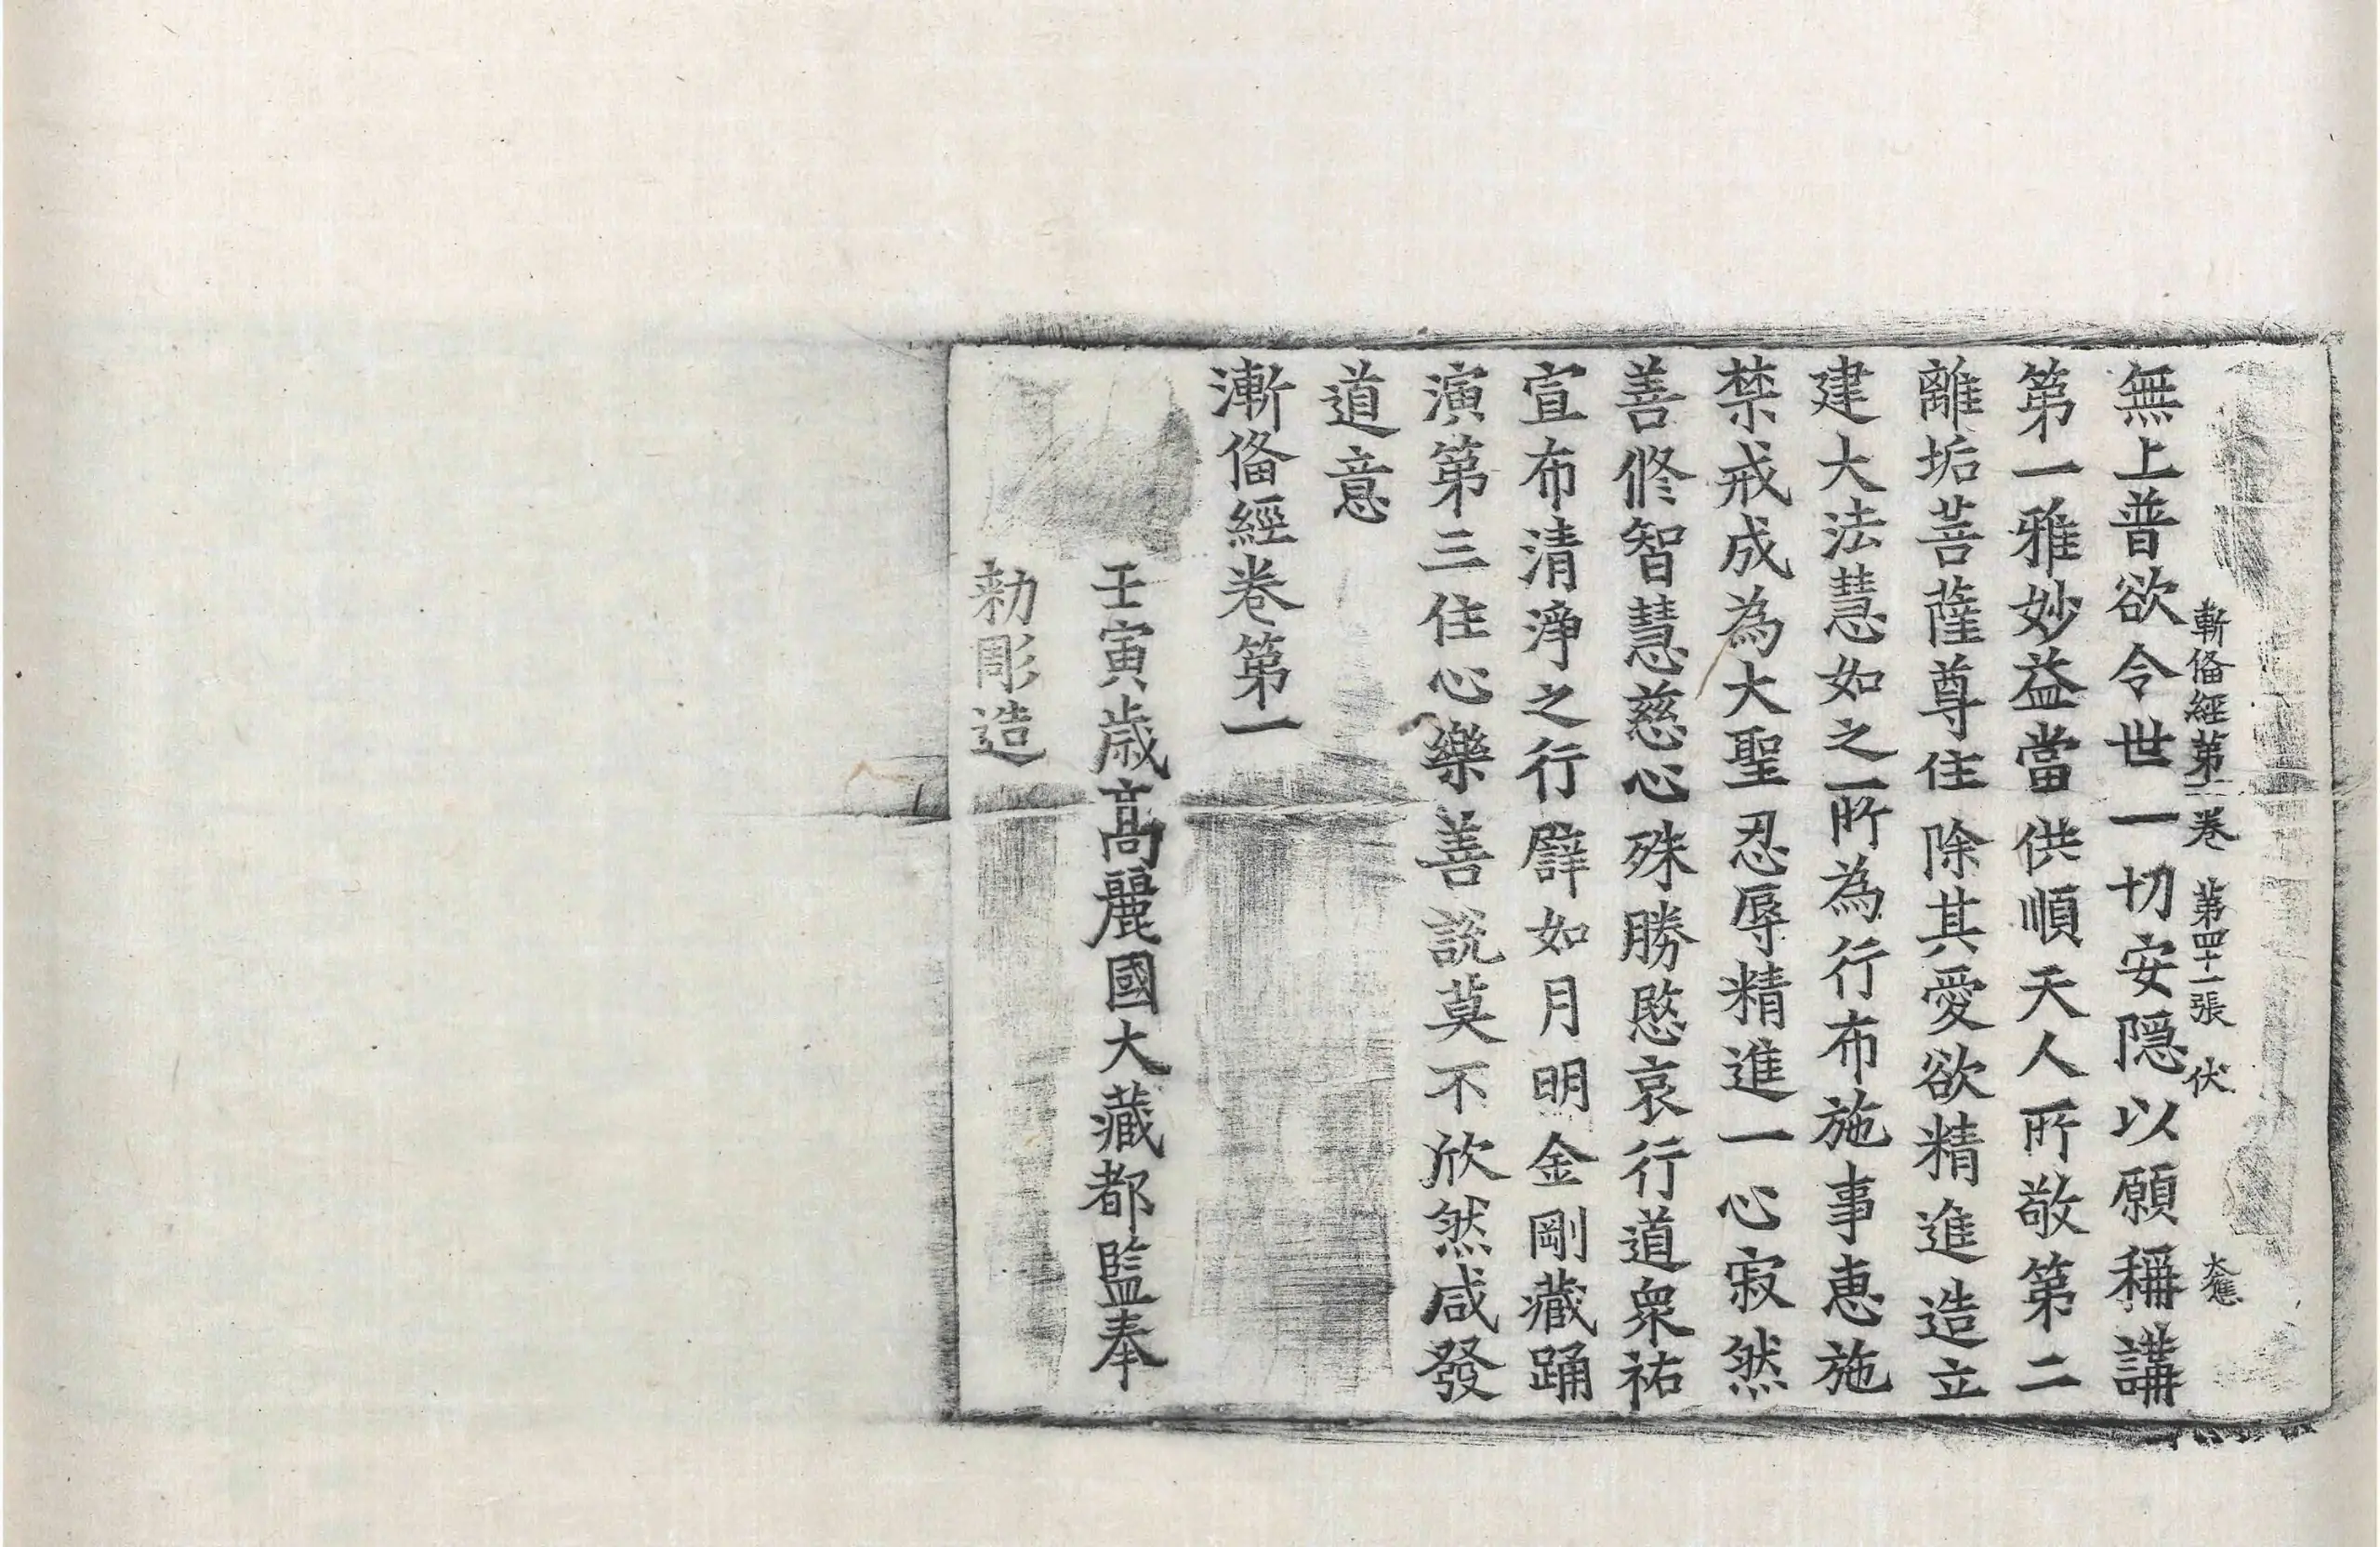 漸俻經第一卷　第四十一張　伏
無上普欲令世一切安隱以願稱講
第一雅妙益當供順天人所敬第二
離垢菩薩尊住除其愛欲精進造立
建大法慧如之所為行布施事惠施
禁戒成為大聖忍辱精進一心寂然
善修智慧慈心殊勝愍哀行道衆祐
宣布清淨之行譬如月明金剛藏踊
演第三住心樂善說莫不欣然咸發
道意
漸俻經卷第一
壬寅歲高麗國大藏都監奉
勑彫造